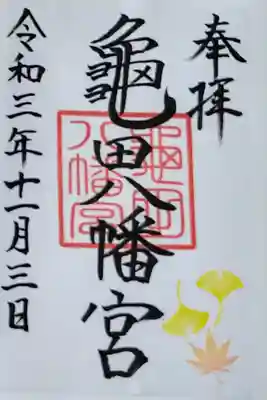 奉拝
亀田八幡宮
龜田八幡宮
令和三年十一月三日